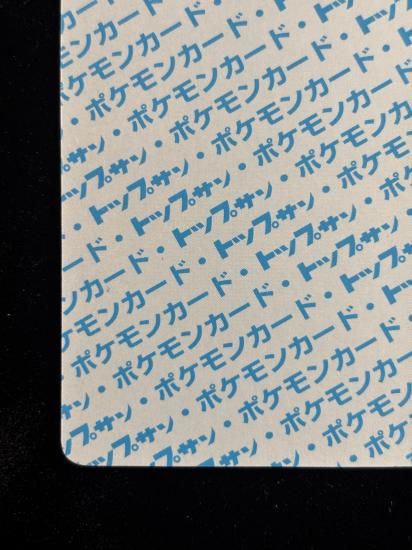 モンカード・
ケモンカード・
・ポケモンカード・
トップサン・ポケモンカード・
・トップサン・ポケモンカード
ド・トップサン・ポケモンカ
カード・トップサン・ポケモ
ンカード・トップサン・ポ
ポケモンカード・トップサン・
・ポケモンカード・トップサン
トップサン・ポケモンカード・
トップサン・ポケモンカード
トップサン・ポケモ